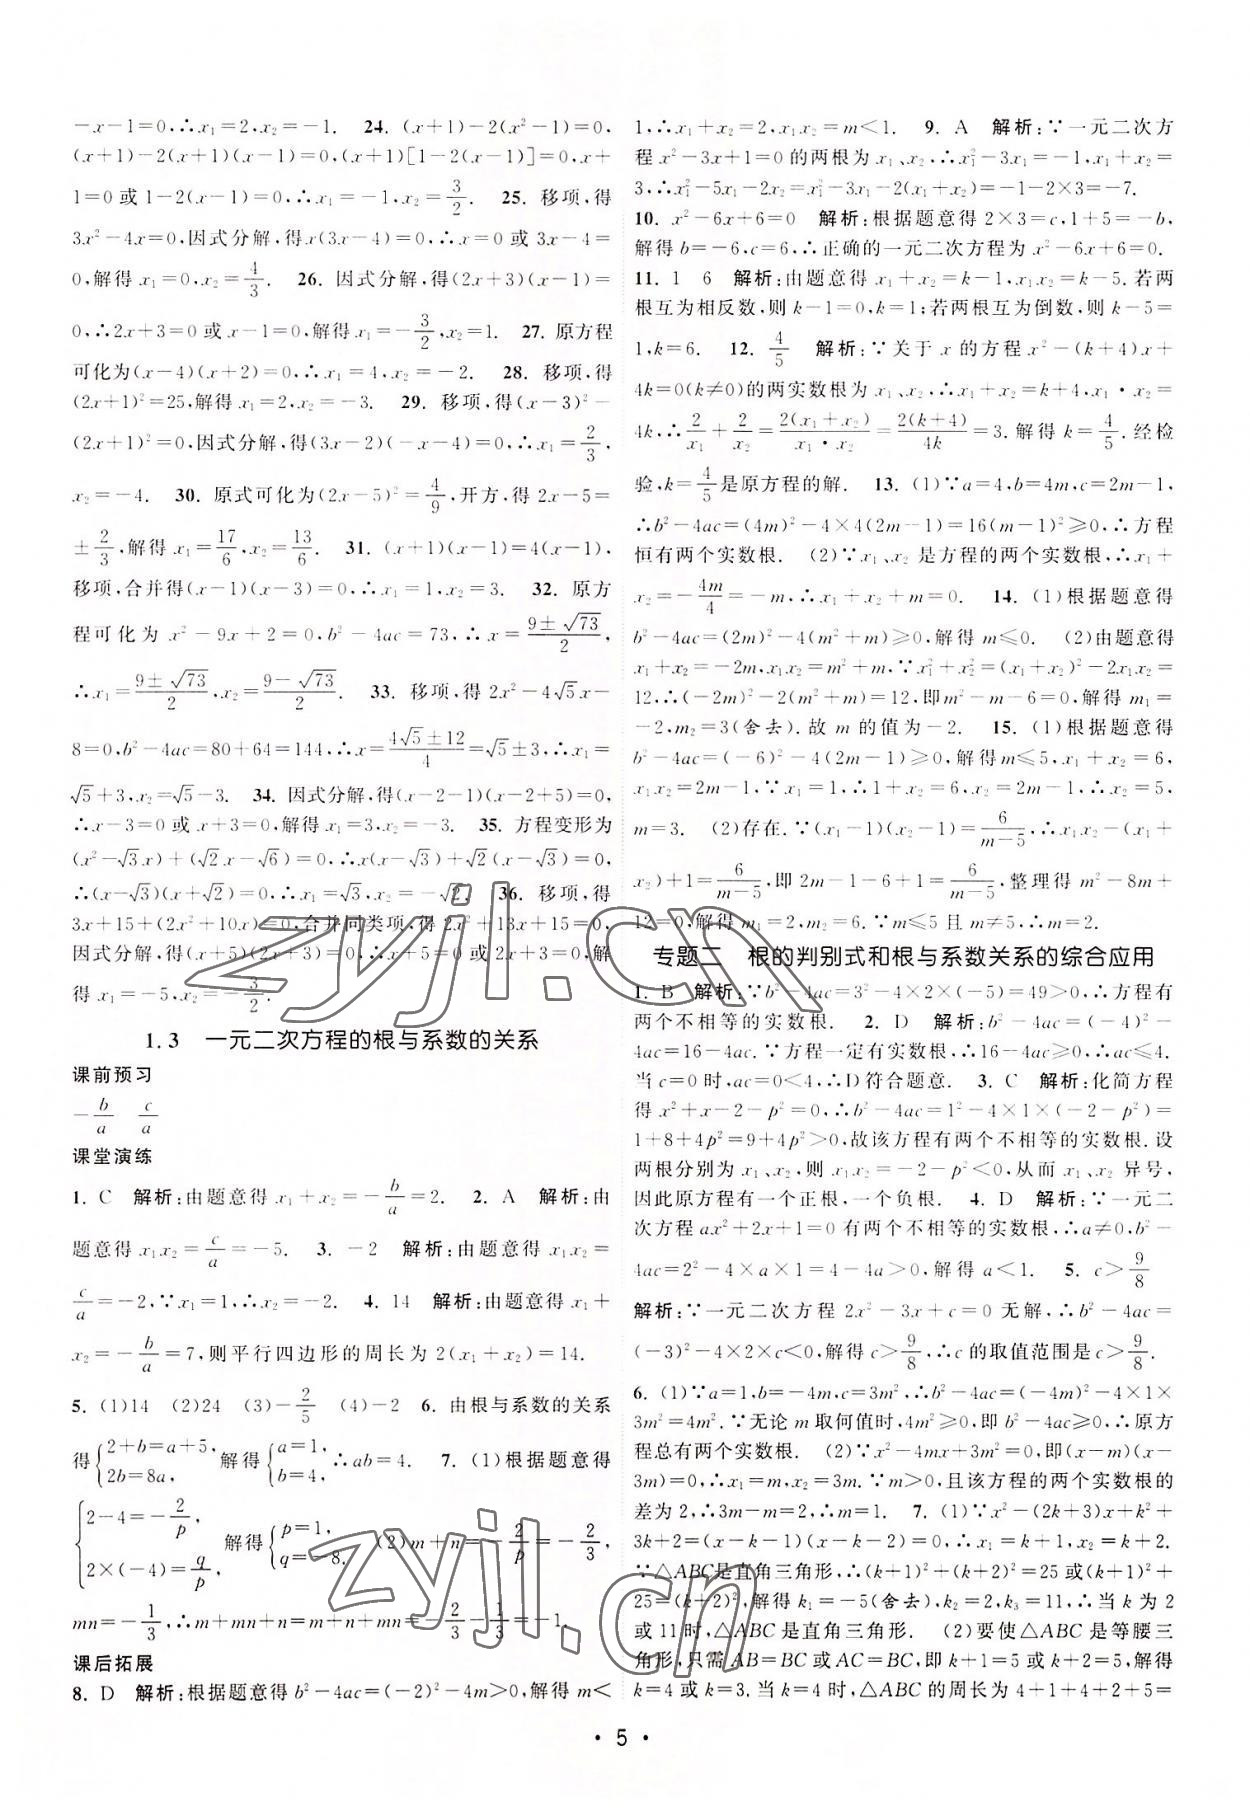 －x－1＝0,∴x₁＝2,x₂＝－1. 24. (x＋1)－2(x²－1)＝0,
(x＋1)－2(x＋1)(x－1)＝0,(x＋1)[1－2(x－1)]＝0,x＋
1＝0 或 1－2(x－1)＝0,∴x₁＝－1,x₂＝3/2. 25. 移项,得
3x²－4x＝0,因式分解,得x(3x－4)＝0,∴x＝0 或 3x－4＝
0,解得 x₁＝0,x₂＝4/3. 26. 因式分解,得(2x＋3)(x－1)＝
0,∴2x＋3＝0 或 x－1＝0,解得 x₁＝－3/2,x₂＝1. 27. 原方程
可化为(x－4)(x＋2)＝0,∴x₁＝4,x₂＝－2. 28. 移项,得
(2x＋1)²＝25,解得 x₁＝2,x₂＝－3. 29. 移项,得(x－3)²－
(2x＋1)²＝0,因式分解,得(3x－2)(－x－4)＝0,∴x₁＝2/3,
x₂＝－4. 30. 原式可化为(2x－5)²＝4/9,开方,得 2x－5＝
±2/3,解得 x₁＝17/6,x₂＝13/6. 31. (x＋1)(x－1)＝4(x－1),
移项,合并得(x－1)(x－3)＝0,∴x₁＝1,x₂＝3. 32. 原方
程可化为 x²－9x＋2＝0,b²－4ac＝73,∴x＝(9±√73)/2,
∴x₁＝(9±√73)/2,x₂＝(9－√73)/2. 33. 移项,得 2x²－4√5x－
8＝0,b²－4ac＝80＋64＝144,∴x＝(4√5±12)/4＝√5±3,∴x₁＝
√5＋3,x₂＝√5－3. 34. 因式分解,得(x－2－1)(x－2＋5)＝0,
∴x－3＝0 或 x＋3＝0,解得 x₁＝3,x₂＝－3. 35. 方程变形为
(x²－√3x)＋(√2x－√6)＝0,∴x(x－√3)＋√2(x－√3)＝0,
∴(x－√3)(x＋√2)＝0,∴x₁＝√3,x₂＝－√2. 36. 移项,得
3x＋15＋(2x²＋10x)＝0,合并同类项,得 2x²＋13x＋15＝0,
因式分解,得(x＋5)(2x＋3)＝0,∴x＋5＝0 或 2x＋3＝0,解
得 x₁＝－5,x₂＝－3/2.
1.3 一元二次方程的根与系数的关系
课前预习
－b/a c/a
课堂演练
1. C 解析:由题意得 x₁＋x₂＝－b/a＝2. 2. A 解析:由
题意得 x₁x₂＝c/a＝－5. 3. －2 解析:由题意得 x₁x₂＝
c/a＝－2,∵x₁＝1,∴x₂＝－2. 4. 14 解析:由题意得 x₁＋
x₂＝－b/a＝7,则平行四边形的周长为 2(x₁＋x₂)＝14.
5. (1)14 (2)24 (3)－2/5 (4)－2 6. 由根与系数的关系
得{2＋b＝a＋5, 2b＝8a, 解得{a＝1, b＝4, ∴ab＝4. 7. (1)根据题意得
{2－4＝－2/p, 2×(－4)＝q/p, 解得{p＝1, q＝－8. (2)m＋n＝－2/p＝－2/3,
mn＝－1/3,∴m＋mn＋n＝m＋n＋mn＝－2/3－1/3＝－1.
课后拓展
8. D 解析:根据题意得 b²－4ac＝(－2)²－4m＞0,解得 m＜
1,∴x₁＋x₂＝2,x₁x₂＝m＜1. 9. A 解析:∵一元二次方
程 x²－3x＋1＝0 的两根为 x₁、x₂,∴x₁²－3x₁＝－1,x₁＋x₂＝
3,∴x₁²－5x₁－2x₂＝x₁²－3x₁－2(x₁＋x₂)＝－1－2×3＝－7.
10. x²－6x＋6＝0 解析:根据题意得 2×3＝c,1＋5＝－b,
解得 b＝－6,c＝6,∴正确的一元二次方程为 x²－6x＋6＝0.
11. 1 6 解析:由题意得 x₁＋x₂＝k－1,x₁x₂＝k－5.若两
根互为相反数,则 k－1＝0,k＝1;若两根互为倒数,则 k－5＝
1,k＝6. 12. 4/5 解析:∵关于 x 的方程 x²－(k＋4)x＋
4k＝0(k≠0)的两实数根为 x₁、x₂,∴x₁＋x₂＝k＋4,x₁•x₂＝
4k,∴2/x₁＋2/x₂＝2(x₁＋x₂)/(x₁•x₂)＝2(k＋4)/4k＝3.解得 k＝4/5.经检
验,k＝4/5是原方程的解. 13. (1)∵a＝4,b＝4m,c＝2m－1,
∴b²－4ac＝(4m)²－4×4(2m－1)＝16(m－1)²≥0,∴方程
恒有两个实数根. (2)∵x₁、x₂ 是方程的两个实数根,∴x₁＋
x₂＝－4m/4＝－m,∴x₁＋x₂＋m＝0. 14. (1)根据题意得
b²－4ac＝(2m)²－4(m²＋m)≥0,解得 m≤0. (2)由题意得
x₁＋x₂＝－2m,x₁x₂＝m²＋m,∵x₁²＋x₂²＝(x₁＋x₂)²－2x₁x₂＝
12,∴(－2m)²－2(m²＋m)＝12,即m²－m－6＝0,解得 m₁＝
－2,m₂＝3(舍去).故 m 的值为－2. 15. (1)根据题意得
b²－4ac＝(－6)²－4(2m－1)≥0,解得m≤5,x₁＋x₂＝6,
x₁x₂＝2m－1,∵x₁＝1,∴1＋x₂＝6,x₂＝2m－1,∴x₂＝5,
m＝3. (2)存在.∵(x₁－1)(x₂－1)＝6/(m－5),∴x₁x₂－(x₁＋
x₂)＋1＝6/(m－5),即 2m－1－6＋1＝6/(m－5),整理得 m²－8m＋
12＝0,解得 m₁＝2,m₂＝6.∵m≤5 且 m≠5,∴m＝2.
专题二 根的判别式和根与系数关系的综合应用
1. B 解析:∵b²－4ac＝3²－4×2×(－5)＝49＞0,∴方程有
两个不相等的实数根. 2. D 解析:b²－4ac＝(－4)²－
4ac＝16－4ac.∵方程一定有实数根,∴16－4ac≥0,∴ac≤4.
当c＝0 时,ac＝0＜4,∴D符合题意. 3. C 解析:化简方程
得 x²＋x－2－p²＝0,∴b²－4ac＝1²－4×1×(－2－p²)＝
1＋8＋4p²＝9＋4p²＞0,故该方程有两个不相等的实数根.设
两根分别为 x₁、x₂,则 x₁x₂＝－2－p²＜0,从而 x₁、x₂ 异号,
因此原方程有一个正根,一个负根. 4. D 解析:∵一元二
次方程 ax²＋2x＋1＝0 有两个不相等的实数根,∴a≠0,b²－
4ac＝2²－4×a×1＝4－4a＞0,解得 a＜1. 5. c＞9/8
解析:∵一元二次方程 2x²－3x＋c＝0 无解,∴b²－4ac＝
(－3)²－4×2×c＜0,解得 c＞9/8,∴c的取值范围是c＞9/8.
6. (1)∵a＝1,b＝－4m,c＝3m²,∴b²－4ac＝(－4m)²－4×1×
3m²＝4m².∵无论 m 取何值时,4m²≥0,即 b²－4ac≥0,∴原方
程总有两个实数根. (2)∵x²－4mx＋3m²＝0,即(x－m)(x－
3m)＝0,∴x₁＝m,x₂＝3m.∵m＞0,且该方程的两个实数根的
差为 2,∴3m－m＝2,∴m＝1. 7. (1)∵x²－(2k＋3)x＋k²＋
3k＋2＝(x－k－1)(x－k－2)＝0,∴x₁＝k＋1,x₂＝k＋2.
∵△ABC是直角三角形,∴(k＋1)²＋(k＋2)²＝25或(k＋1)²＋
25＝(k＋2)²,解得 k₁＝－5(舍去),k₂＝2,k₃＝11,∴当 k 为 2
或 11时,△ABC是直角三角形. (2)要使△ABC是等腰三
角形,只需 AB＝BC 或AC＝BC,即 k＋1＝5或 k＋2＝5,解得
k＝4或 k＝3.当 k＝4时,△ABC 的周长为 4＋1＋4＋2＋5＝
zyjl.cn
zyjl.cn
• 5 •